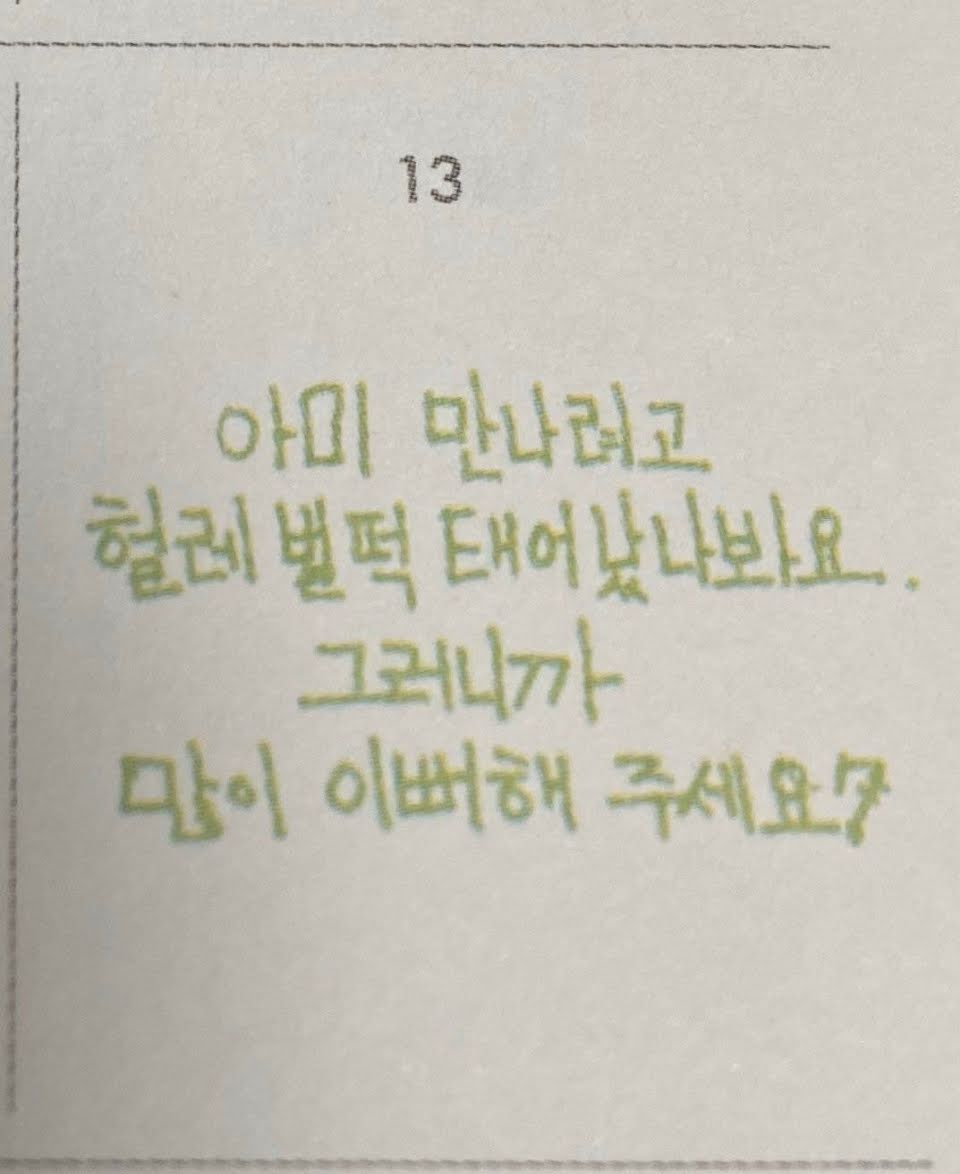 13
아미 만나려고
헐레벌떡 태어났나봐요.
그러니까
많이 이뻐해 주세요?